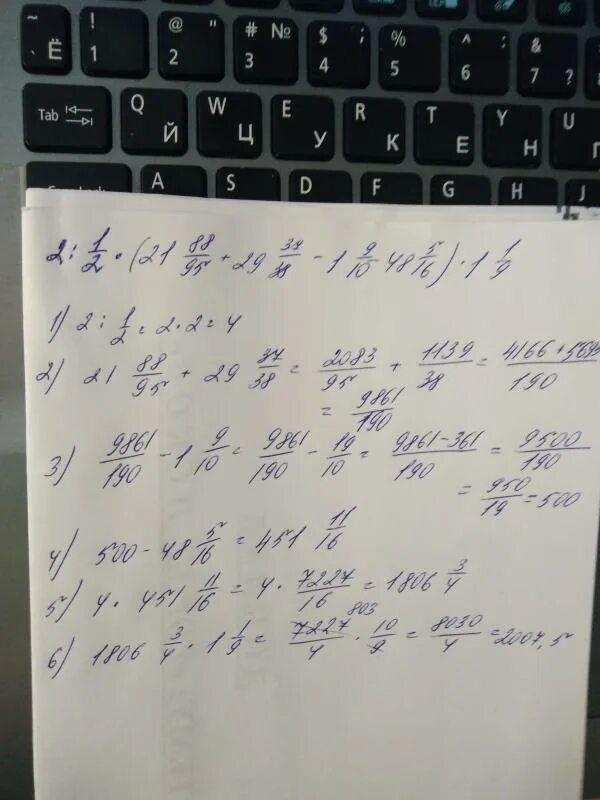 ~ Ё ! 1 @ " 2 # № 3 $ ; 4 % 5 ^ : 6 & 7 ?
Tab Q Й W Ц E У R К T Е Y Н U
A S D F G H J
2 : 1/2 · (21 88/95 + 29 37/38 - 1 9/10 - 48 5/16) · 1 1/9
1) 2 : 1/2 = 2 · 2 = 4
2) 21 88/95 + 29 37/38 = 2083/95 + 1139/38 = 4166 + 5695/190
= 9861/190
3) 9861/190 - 1 9/10 = 9861/190 - 19/10 = 9861 - 361/190 = 9500/190
= 950/19 = 500
4) 500 - 48 5/16 = 451 11/16
5) 4 · 451 11/16 = 4 · 7227/16 = 1806 3/4
6) 1806 3/4 · 1 1/9 = 7227 803/4 · 10/9 = 8030/4 = 2007,5